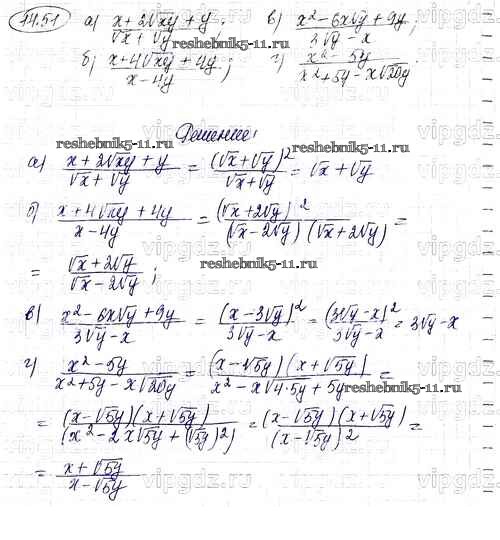 14.51 а) x+2√xy+y / √x+√y ; в) x²-6x√y+9y / 3√y-x ;
б) x+4√xy+4y / x-4y ; г) x²-5y / x²+5y-x√20y .
reshebnik5-11.ru
Решение:
а) x+2√xy+y / √x+√y = (√x+√y)² / √x+√y = √x+√y
б) x+4√xy+4y / x-4y = (√x+2√y)² / (√x-2√y)(√x+2√y) =
= √x+2√y / √x-2√y ;
в) x²-6x√y+9y / 3√y-x = (x-3√y)² / 3√y-x = (3√y-x)² / 3√y-x = 3√y-x
г) x²-5y / x²+5y-x√20y = (x-√5y)(x+√5y) / x²-x√4·5y+5y =
= (x-√5y)(x+√5y) / (x²-2x√5y+(√5y)²) = (x-√5y)(x+√5y) / (x-√5y)² =
= x+√5y / x-√5y